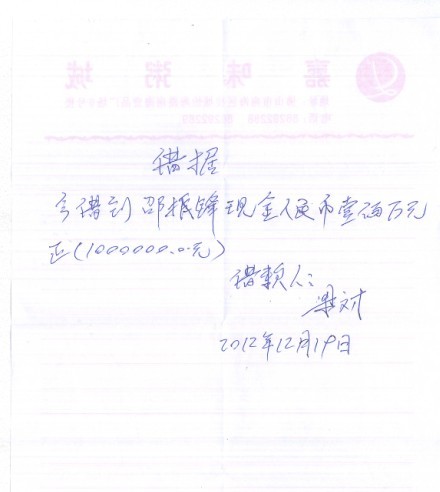 嘉味粥城
借据
今借到邵振锋现金人民币壹佰万元
正(1000000.00元)
借款人:
梁对
2012年12月19日